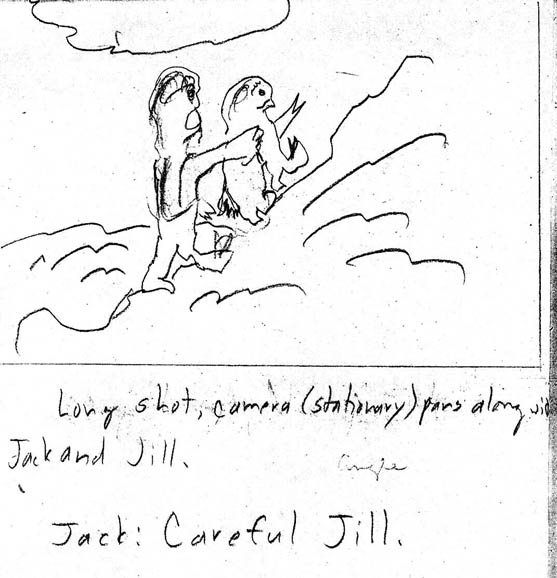 Long shot, camera (stationary) pans along
Jack and Jill.
Angle
Jack: Careful Jill.